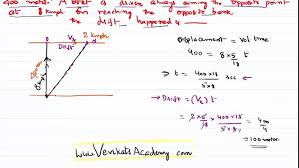 400 metre. A boat is driven always aiming the opposite point
at 8 kmph for reaching the opposite bank.
the drift happened is
Vr 2 kmph
Drift
8 kmph
displacement = Vel time
400 = 8×5/18 t
⇒ t = 400×18/5×8 sec
→ Drift = (Vr) t
= 2×5/18 × 400×18/5×8 = 400/4
= 100 meter
www.VenkatsAcademy.com